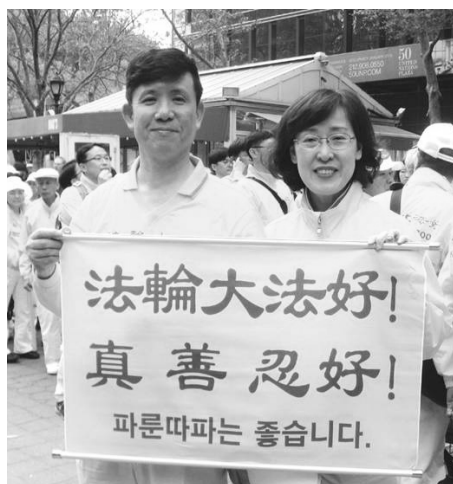 50
UNITED
NATIONS
PLAZA
法輪大法好!
真善忍好!
파룬따파는 좋습니다.